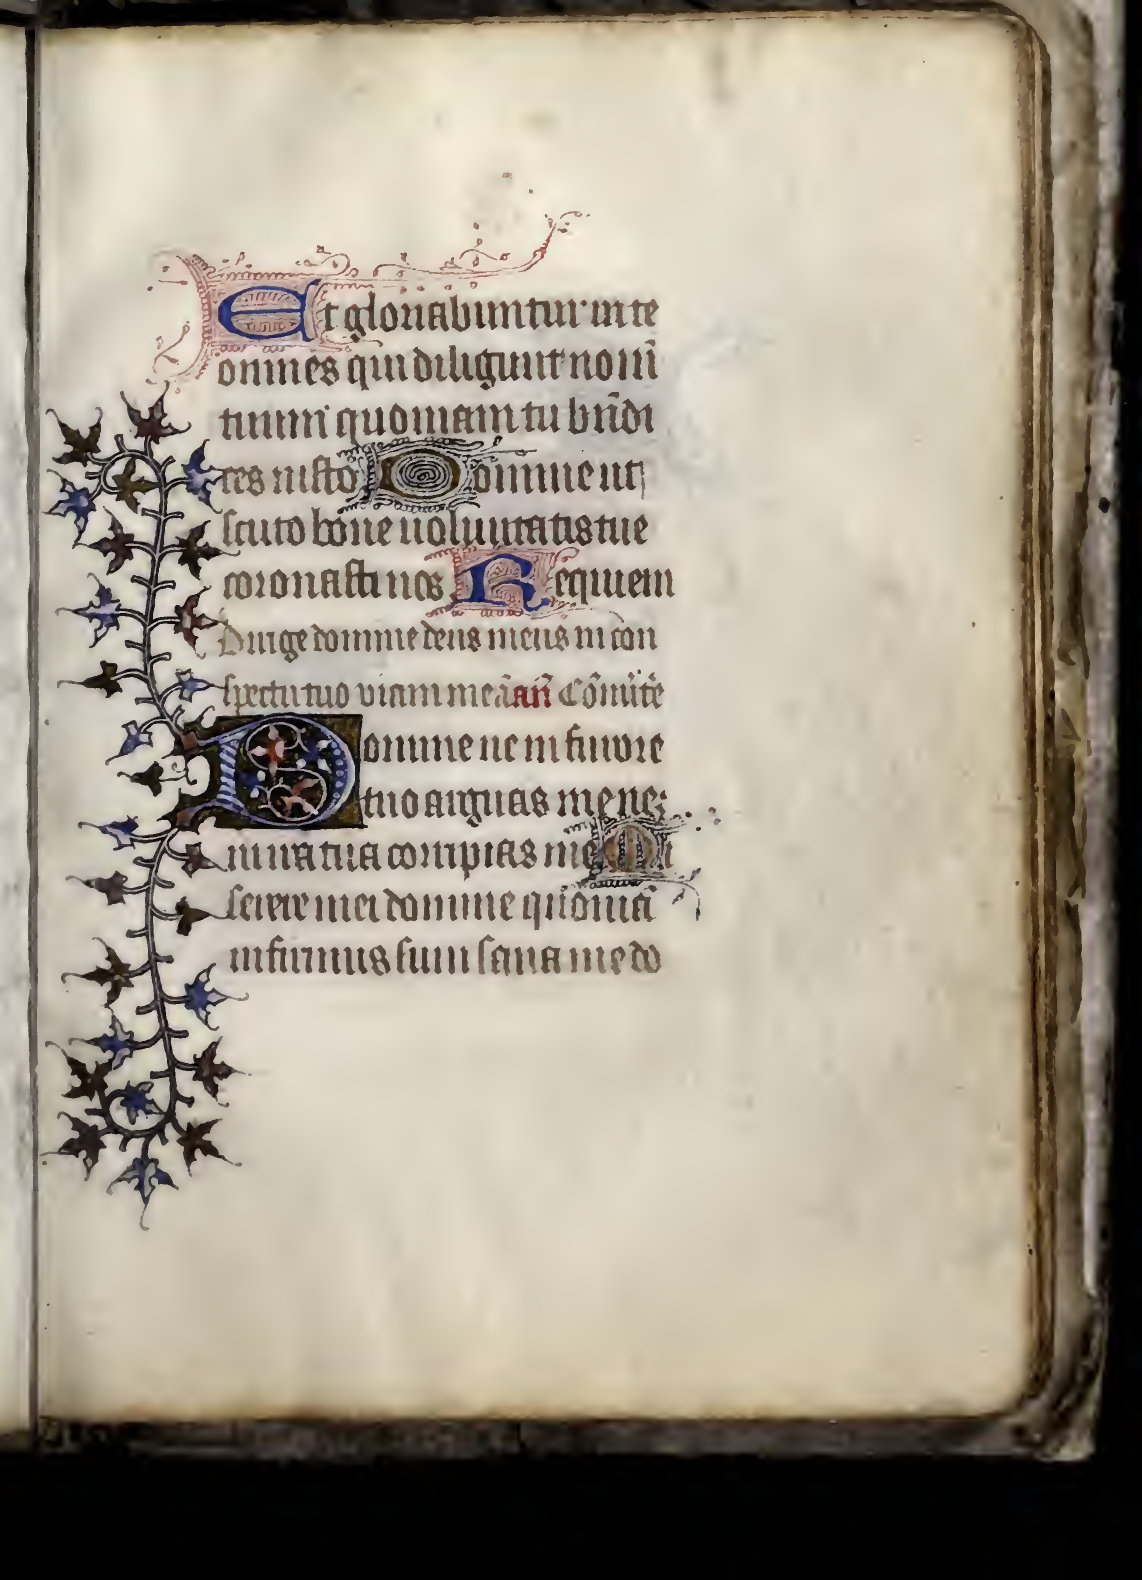 Et gloriabuntur in te
omnes qui diligunt nom̄
tuum quoniam tu bn̄di
ces iusto Domine ut
scuto bone uoluntatis tue
coronasti nos Requiem
Dirige domine deus meus in con
spectu tuo viam meā an̄ Cōuꝰtꝰe
Domine ne in furore
tuo arguas me neqꝫ
in ira tua corripias me Mi
serere mei domine quoniā
infirmus sum sana me do